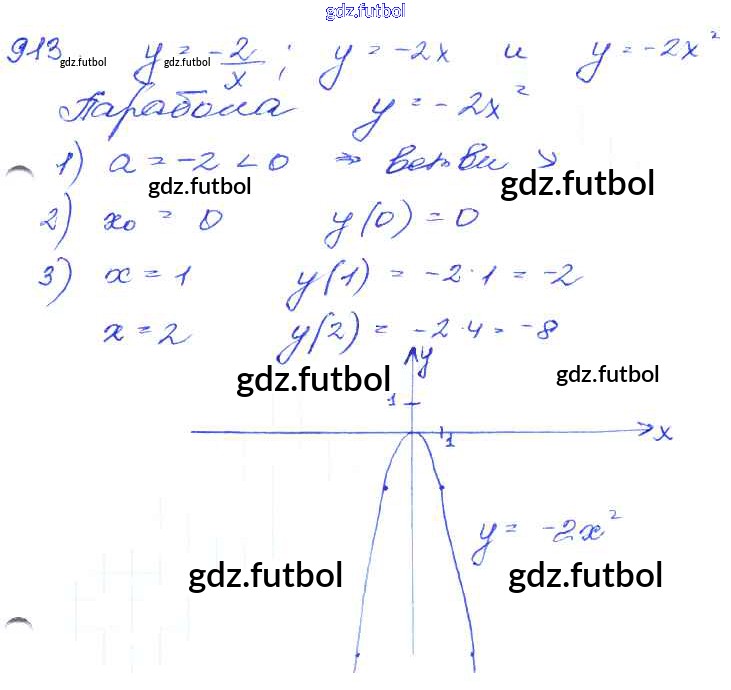 gdz.futbol
913 gdz.futbol y = -2/x gdz.futbol ; y = -2x и y = -2x²
Парабола y = -2x²
1) a = -2 < 0 => ветви
gdz.futbol gdz.futbol
2) x₀ = 0 y(0) = 0
3) x = 1 y(1) = -2·1 = -2
x = 2 y(2) = -2·4 = -8
y
gdz.futbol gdz.futbol
1
1 x
y = -2x²
gdz.futbol gdz.futbol